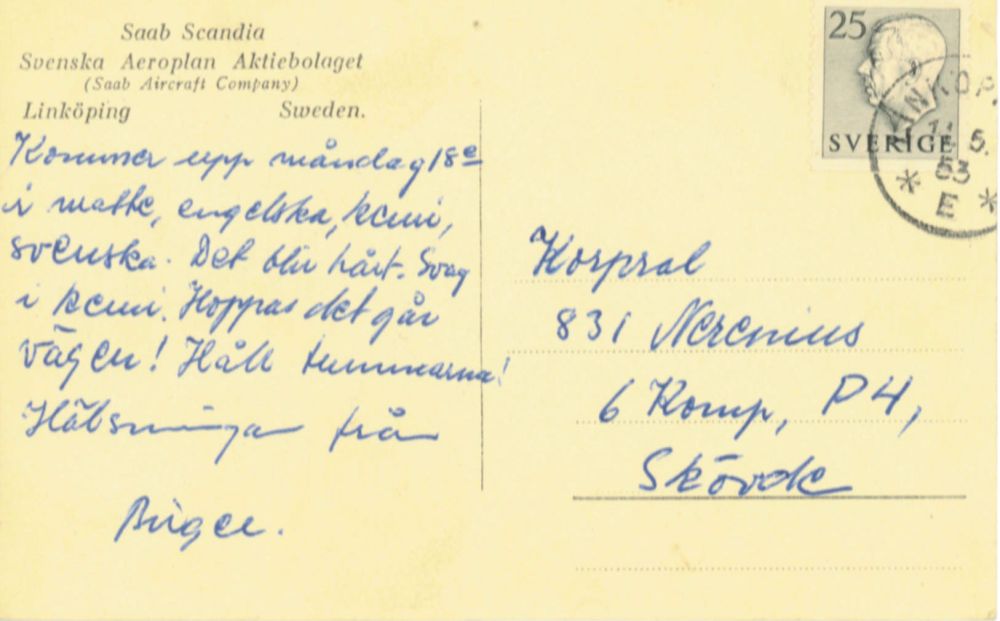 Saab Scandia
Svenska Aeroplan Aktiebolaget
(Saab Aircraft Company)
Linköping Sweden.
Kommer upp måndag 18e
i matte, engelska, kemi,
svenska. Det blir hårt. Svag
i kemi. Hoppas det går
vägen! Håll tummarna!
Hälsningar från
Birger.
25
SVERIGE
NKÖP
5.
53
* E *
Korpral
831 Nerenius
6 Komp, P4,
Skövde